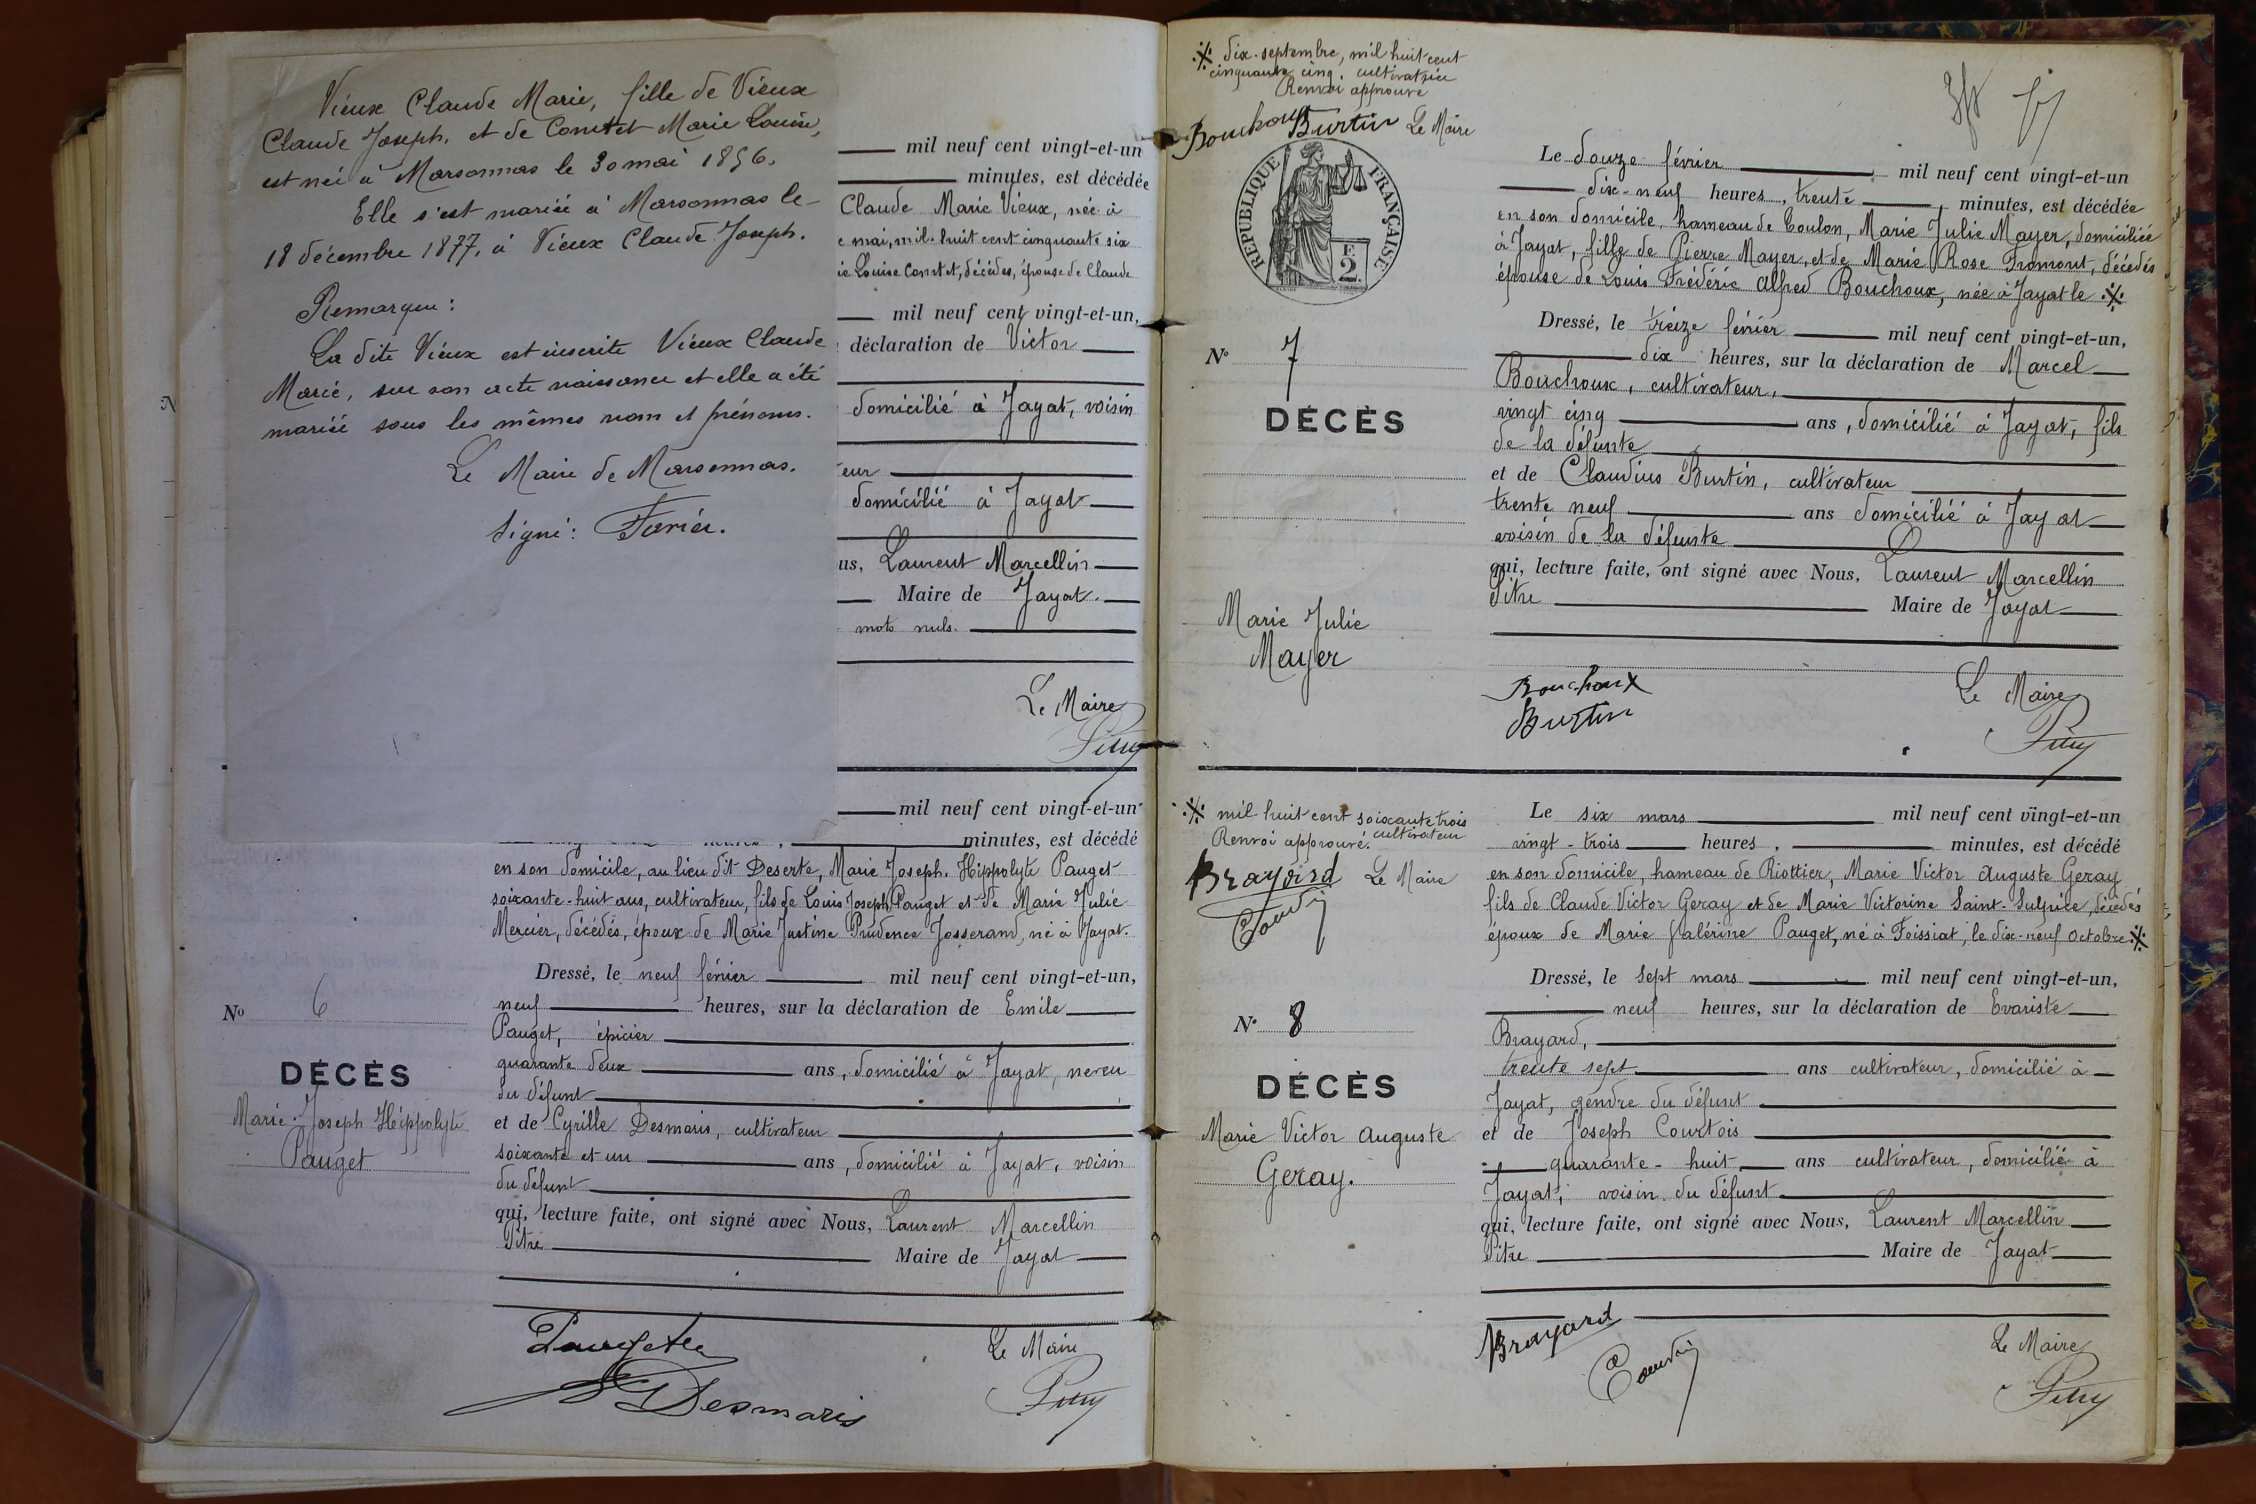 Vieux Claude Marie, fille de Vieux
Claude Joseph, et de Comtet Marie Louise,
est née à Marsonnas le 30 mai 1856.
Elle s'est mariée à Marsonnas le
18 décembre 1877, à Vieux Claude Joseph.
Remarque :
La dite Vieux est inscrite Vieux Claude
Marie, sur son acte naissance et elle a été
mariée sous les mêmes nom et prénoms.
Le Maire de Marsonnas.
Signé :
mil neuf cent vingt-et-un
minutes, est décédée
Claude Marie Vieux, née à
mai, mil huit cent cinquante six
ie Louise Comtet, décédés, épouse de Claude
mil neuf cent vingt-et-un,
déclaration de Victor
domicilié à Jayat, voisin
eur
domicilié à Jayat
us, Laurent Marcellin
Maire de Jayat.
mots nuls.
Le Maire
mil neuf cent vingt-et-un
minutes, est décédé
en son domicile, au lieu dit Deserte, Marie Joseph Hippolyte Pauget
soixante-huit ans, cultivateur, fils de Louis Joseph Pauget et de Marie Julie
Mercier, décédés, époux de Marie Justine Prudence Josserand, né à Jayat.
Dressé, le neuf février mil neuf cent vingt-et-un,
neuf heures, sur la déclaration de Emile
Pauget, épicier
quarante deux ans, domicilié à Jayat, neveu
du défunt
et de Cyrille Desmaris, cultivateur
soixante et un ans, domicilié à Jayat, voisin
du défunt
qui, lecture faite, ont signé avec Nous, Laurent Marcellin
Pitre Maire de Jayat
No 6
DÉCÈS
Marie Joseph Hippolyte
Pauget
Le Maire
Desmaris
※ dix septembre, mil huit cent
cinquante cinq, cultivatrice
Renvoi approuvé
Bouchoux Burtin Le Maire
RÉPUBLIQUE FRANÇAISE
E
2
Le douze février mil neuf cent vingt-et-un
dix-neuf heures, trente minutes, est décédée
en son domicile, hameau de Coulon, Marie Julie Mayer, domiciliée
à Jayat, fille de Pierre Mayer, et de Marie Rose Fromont, décédés
épouse de Louis Frédéric Alfred Bouchoux, née à Jayat le ※
Dressé, le treize février mil neuf cent vingt-et-un,
dix heures, sur la déclaration de Marcel
Bouchoux, cultivateur,
vingt cinq ans, domicilié à Jayat, fils
de la défunte
et de Claudius Burtin, cultivateur
trente neuf ans domicilié à Jayat
voisin de la défunte
qui, lecture faite, ont signé avec Nous, Laurent Marcellin
Pitre Maire de Jayat
No 7
DÉCÈS
Marie Julie
Mayer
Bouchoux
Burtin
Le Maire
※ mil huit cent soixante trois
cultivateur
Renvoi approuvé.
Brayard Le Maire
Le six mars mil neuf cent vingt-et-un
vingt-trois heures, minutes, est décédé
en son domicile, hameau de Riottier, Marie Victor Auguste Geray
fils de Claude Victor Geray et de Marie Victorine Saint-Sulpice, décédés
époux de Marie Valérine Pauget, né à Foissiat, le dix-neuf Octobre ※
Dressé, le sept mars mil neuf cent vingt-et-un,
neuf heures, sur la déclaration de Evariste
Brayard,
trente sept ans cultivateur, domicilié à
Jayat, gendre du défunt
et de Joseph Courtois
quarante-huit ans cultivateur, domicilié à
Jayat, voisin du défunt
qui, lecture faite, ont signé avec Nous, Laurent Marcellin
Pitre Maire de Jayat
No 8
DÉCÈS
Marie Victor Auguste
Geray.
Brayard
Le Maire